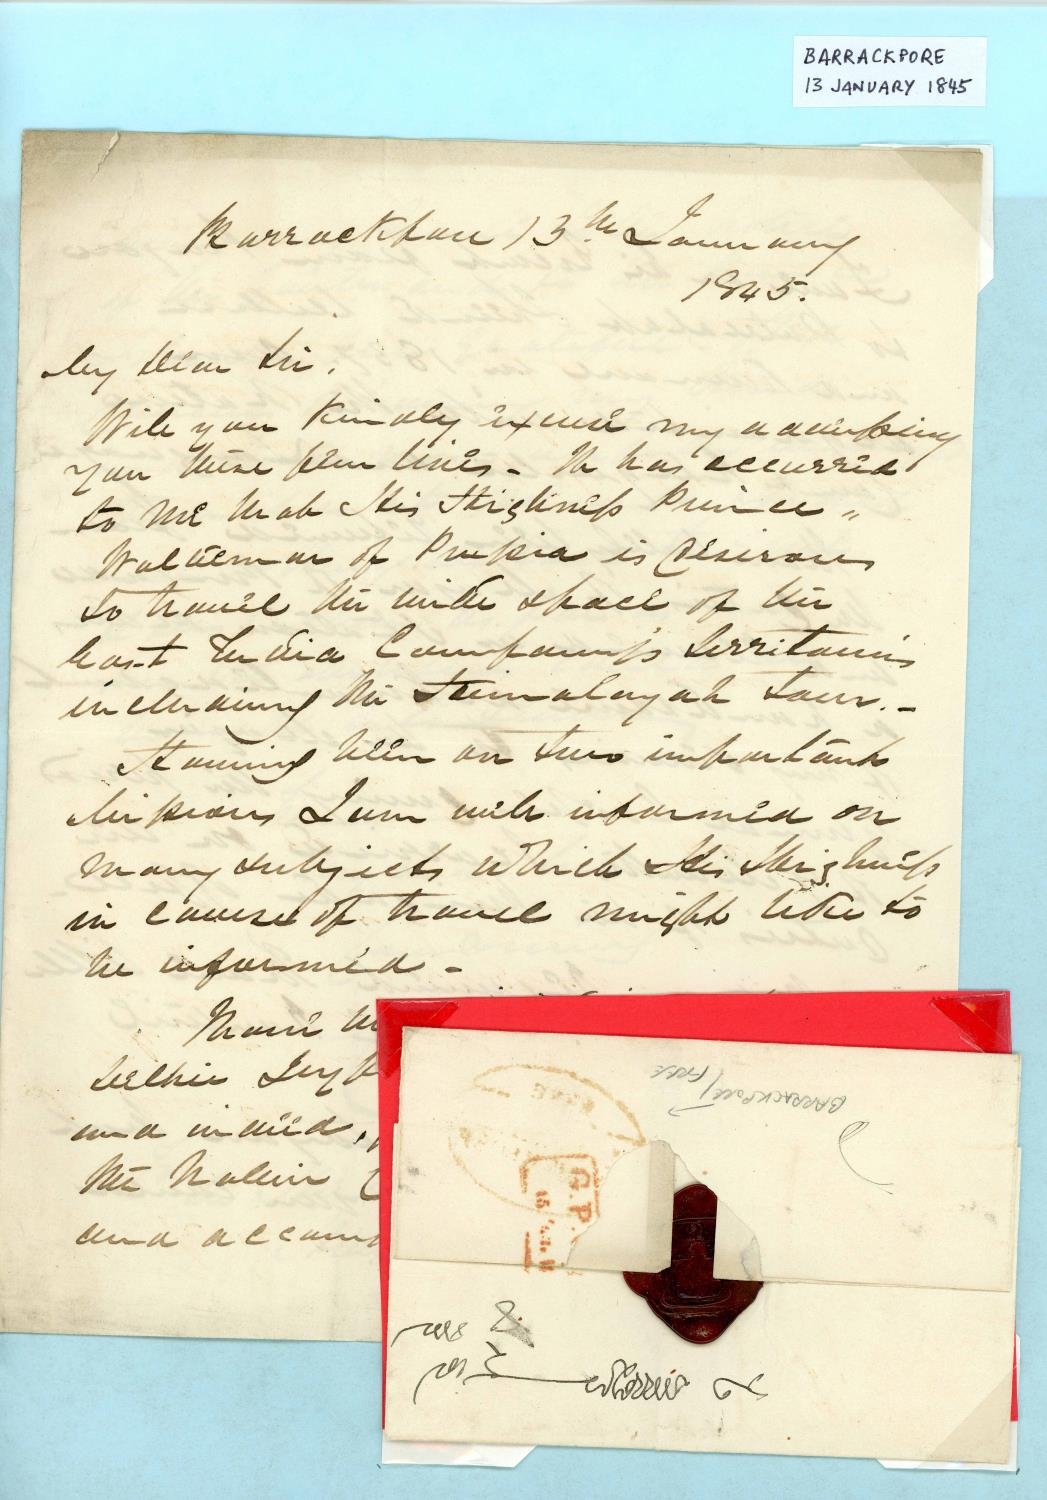 BARRACKPORE
13 JANUARY 1845
Barrackpore 13th January
1845.
My Dear Sir,
Will you kindly excuse my addressing
you these few lines - It has occurred
to me that His Highness Prince "
Waldemar of Prussia is desirous
to travel the wide space of the
East India Company's Territories
including the Himalayah Tour. -
Having been on two important
Missions I am well informed on
many subjects which His Highness
in course of travel might like to
be informed -
I have
and indeed,
the Native
and
BARRACKPORE/
FREE
G.P.
15